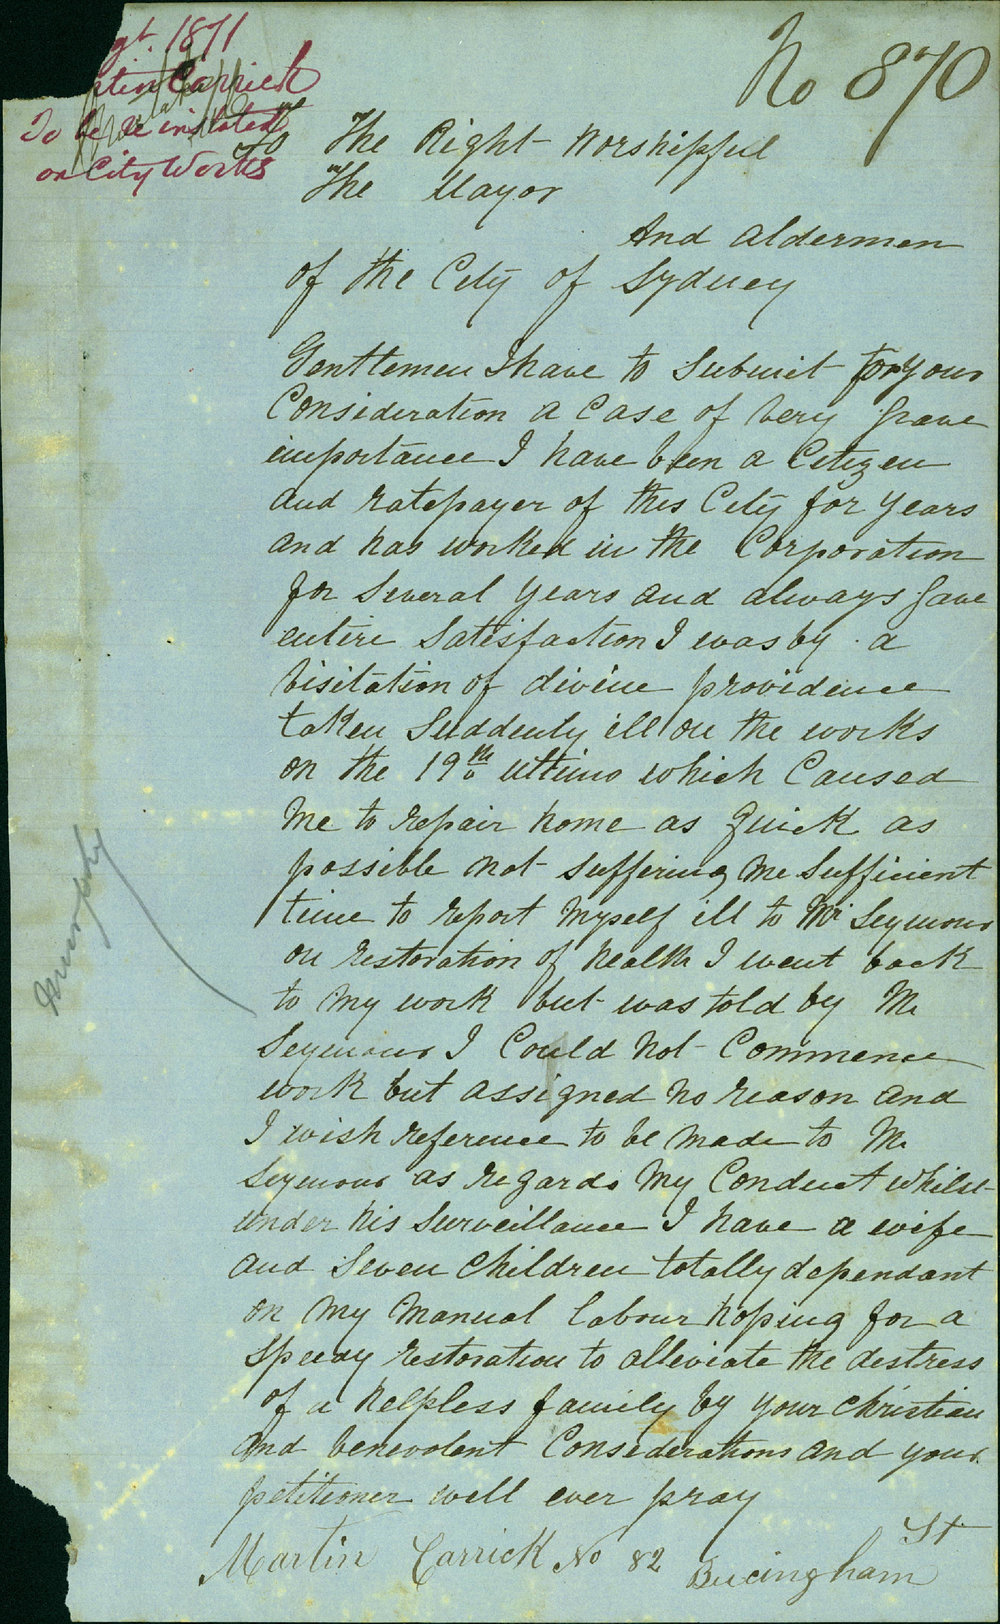 No 870
gt. 1871
tin Carrick
To be re instated
on City Works
To The Right Worshipful
The Mayor
And Aldermen
of the City of Sydney
Gentlemen I have to Submit for your
Consideration a Case of very grave
importance I have been a Citizen
and ratepayer of this City for years
and has worked in the Corporation
for Several years and always gave
entire Satisfaction I was by a
visitation of divine providence
taken Suddenly ill on the works
on the 19th ultimo which Caused
me to repair home as quick as
possible not suffering me Sufficient
time to report myself ill to Mr Seymour
on restoration of health I went back
to my work but was told by Mr
Seymour I Could not Commence
work but assigned no reason and
I wish reference to be made to Mr
Seymour as regards my Conduct whilst
under his Surveillance I have a wife
and Seven Children totally dependant
on my manual labour hoping for a
speedy restoration to alleviate the distress
of a helpless family by your Christian
and benevolent Considerations and your
petitioner will ever pray
Martin Carrick No 82 Bucingham St
Murphy